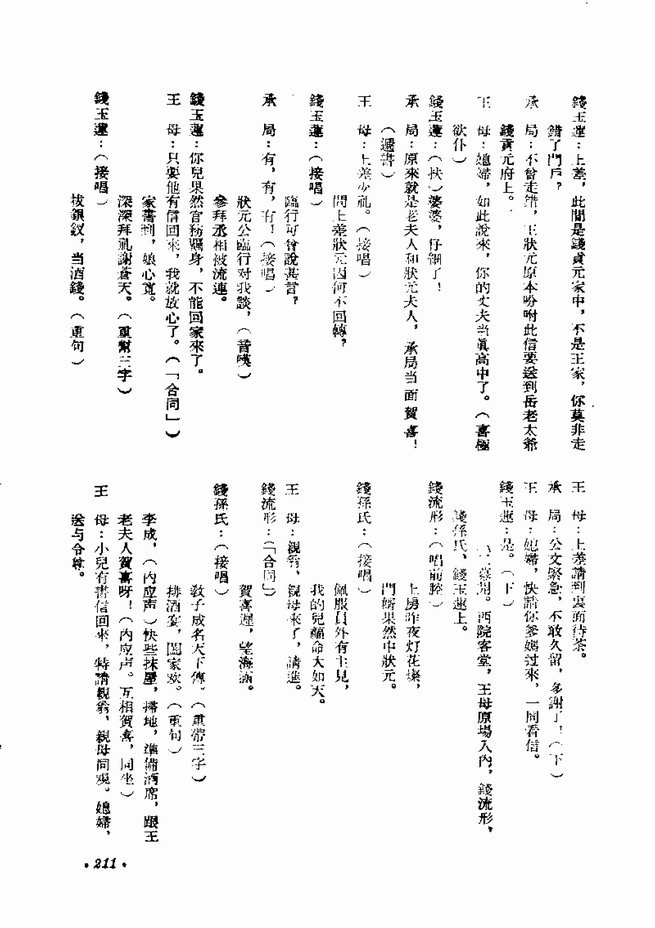 錢玉蓮：上差，此間是錢貢元家中，不是王家，你莫非走
錯了門戶？
承　局：不曾走錯，王狀元原本吩咐此信要送到岳老太爺
錢貢元府上。
王　母：媳婦，如此說來，你的丈夫当眞高中了。（喜極
欲仆）
錢玉蓮：（扶）婆婆，仔細了！
承　局：原來就是老夫人和狀元夫人，承局当面賀喜！
（遞書）
王　母：上差少礼。（接唱）
問上差狀元因何不回轉，
錢玉蓮：（接唱）
臨行可曾說甚言？
承　局：有，有，有！（接唱）
狀元公臨行对我談，（背嘆）
參拜丞相被流連。
錢玉蓮：你兒果然官務屬身，不能回家來了。
王　母：只要他有信回來，我就放心了。（「合同」）
家書到，娘心寬。
深深拜礼謝蒼天。（重幫三字）
錢玉蓮：（接唱）
拔銀釵，当酒錢。（重句）
王　母：上差請到裏面待茶。
承　局：公文緊急，不敢久留，多謝了！（下）
王　母：媳婦，快請你爹媽过來，一同看信。
錢玉蓮：是。（下）
西院客堂，王母原場入內，錢流形，
錢孫氏、錢玉蓮上。
錢流形：（唱前腔）
上房昨夜灯花燦，
門婿果然中狀元。
錢孫氏：（接唱）
佩服員外有主見，
我的兒福命大如天。
王　母：親翁，親母來了，請進。
錢流形：（「合同」）
賀喜遲，望海涵。
錢孫氏：（接唱）
敎子成名天下傳。（重帶三字）
排酒宴，闔家歡。（重句）
李成，（內应声）快些抹屋，掃地，準備酒席，跟王
老夫人賀喜呀！（內应声。互相賀喜，同坐）
王　母：小兒有書信回來，特請親翁，親母同观。媳婦，
送与令尊。
•211•